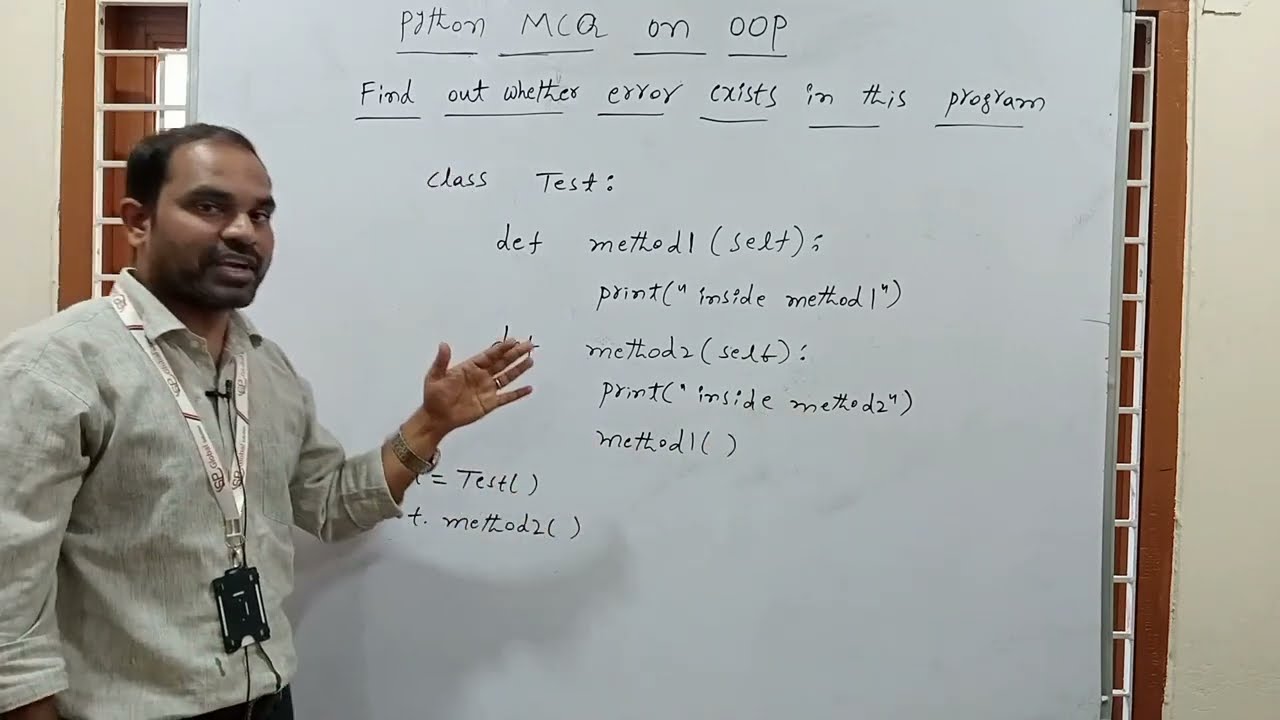 Python MCQ on OOP
Find out whether error exists in this program
class Test:
def method1(self):
print("inside method1")
def method2(self):
print("inside method2")
method1( )
= Test( )
t. method2( )